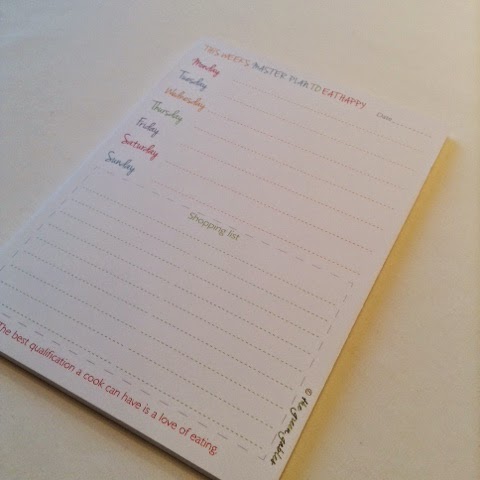 THIS WEEKS MASTER PLAN TO EAT HAPPY
Date
Monday
Tuesday
Wednesday
Thursday
Friday
Saturday
Sunday
Shopping list
The best qualification a cook can have is a love of eating.
© the green gables